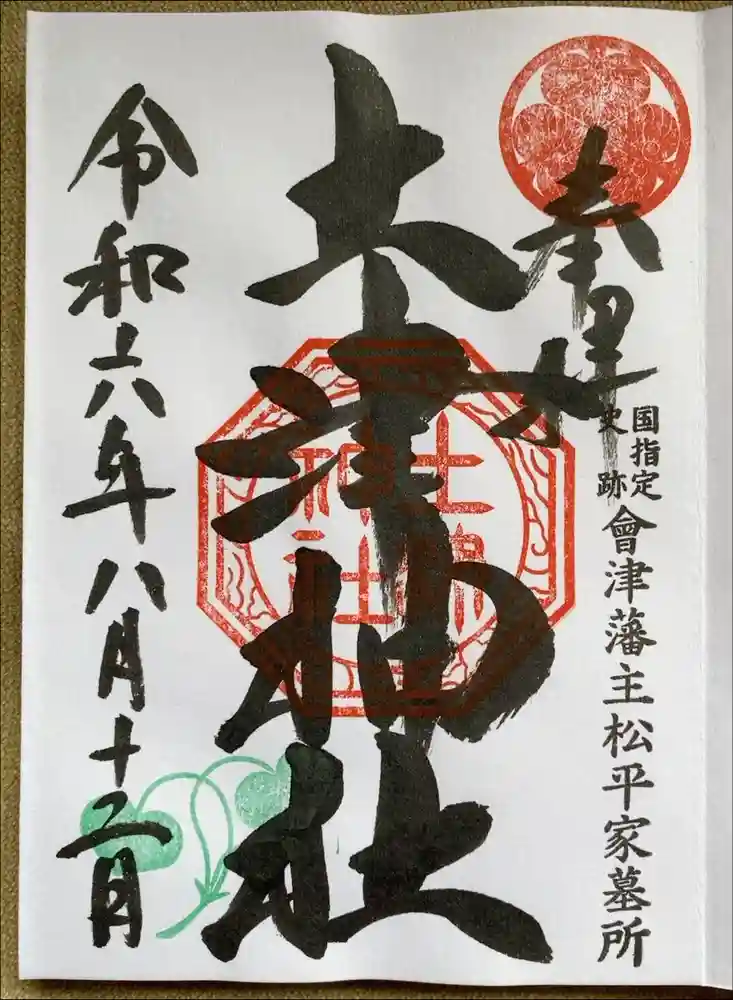 奉拝
国指定
史跡
會津藩主松平家墓所
土津神社
土津
神社
令和六年八月十二日